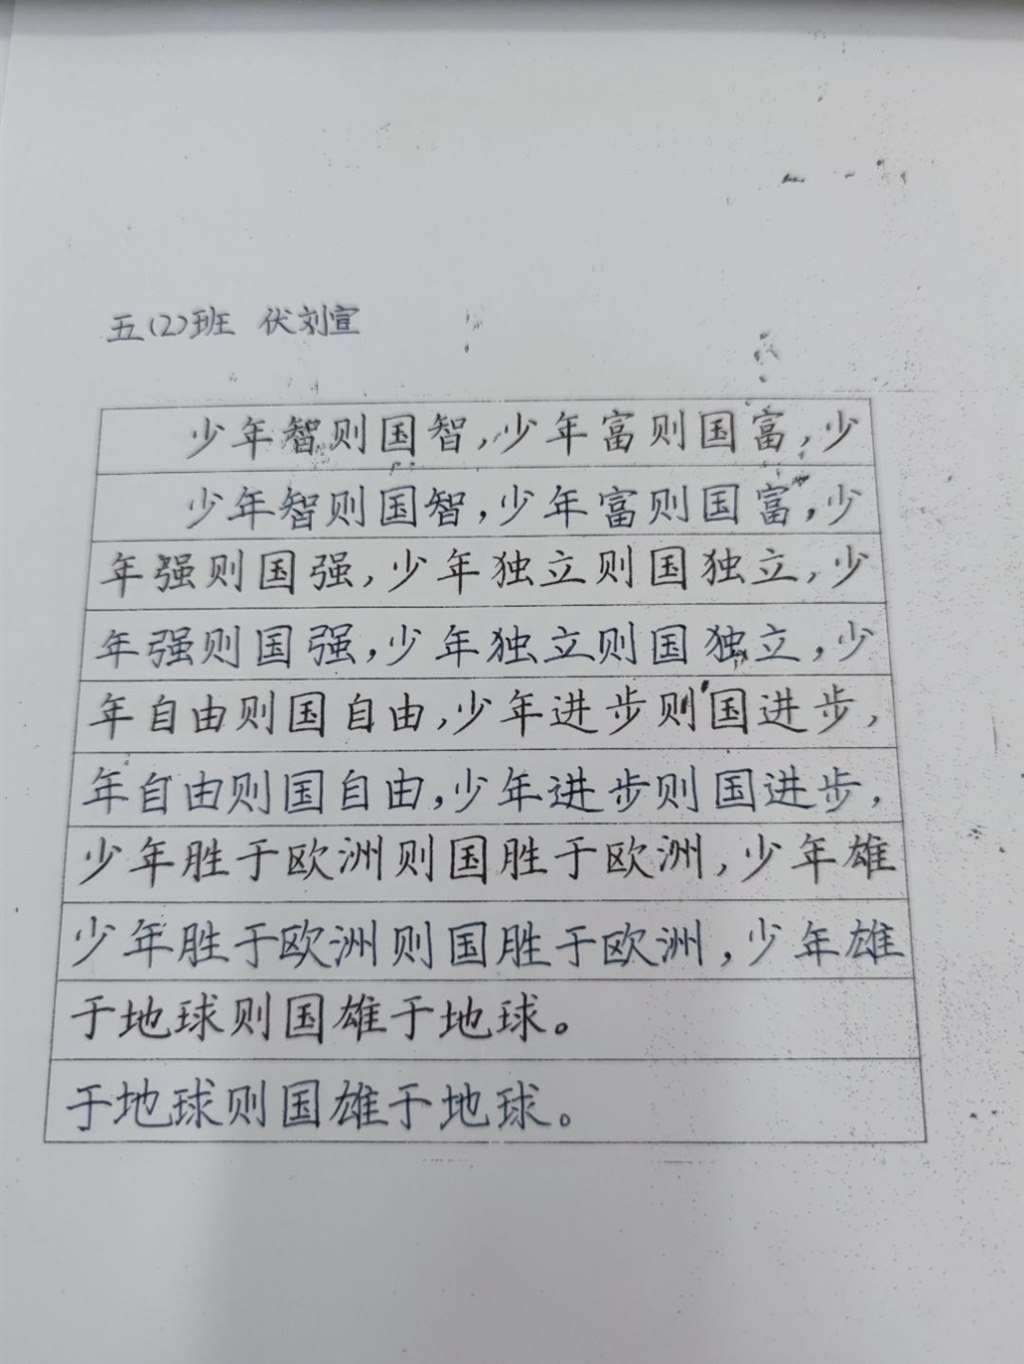 五(2)班 伏刘宣
少年智则国智,少年富则国富,少
少年智则国智,少年富则国富,少
年强则国强,少年独立则国独立,少
年强则国强,少年独立则国独立,少
年自由则国自由,少年进步则国进步,
年自由则国自由,少年进步则国进步,
少年胜于欧洲则国胜于欧洲,少年雄
少年胜于欧洲则国胜于欧洲,少年雄
于地球则国雄于地球。
于地球则国雄于地球。